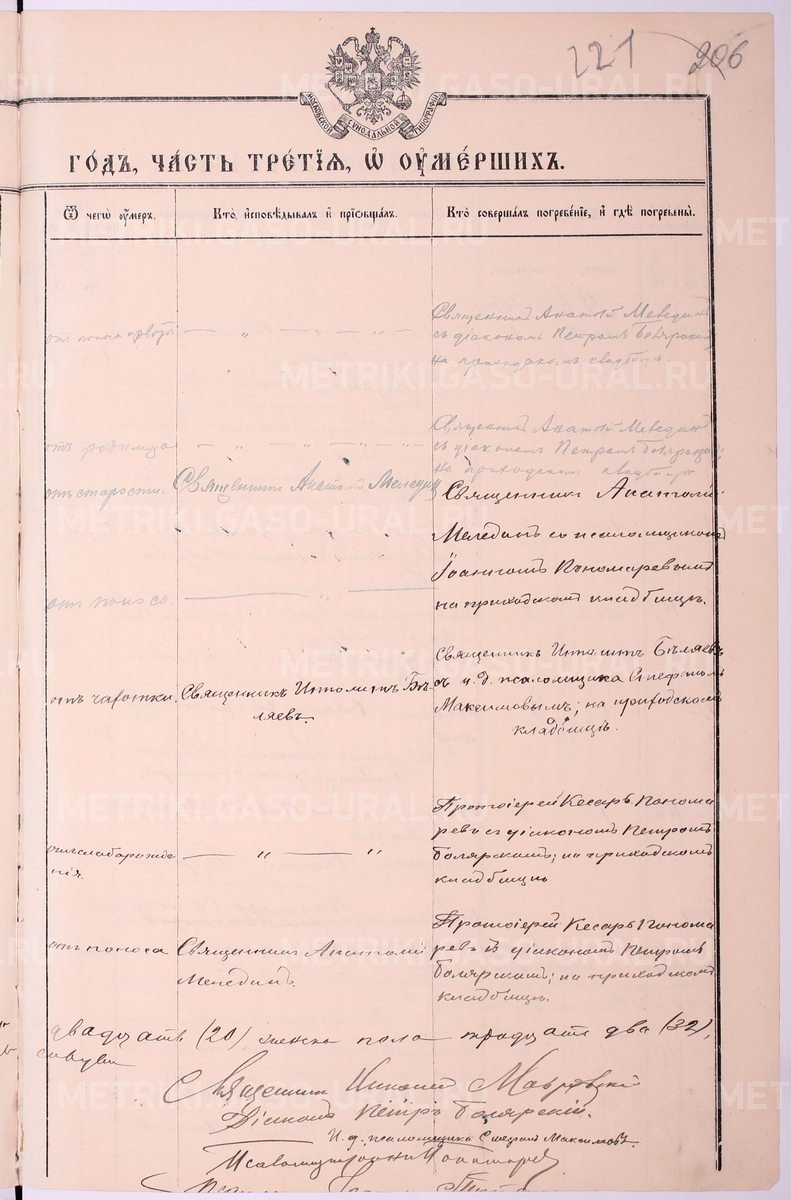 221 206
МОСКОВСКОЙ СѴНОДАЛЬНОЙ ТИПОГРАФІИ
ГО́ДЪ, ЧА́СТЬ ТРЕ́ТІѦ, Ѡ҆ ОУ҆МЕ́РШИХЪ.
Ѿ чегѡ̀ оу҆́меръ.
Кто̀ и҆сповѣ́дывалъ и҆ прїѡбща́лъ.
Кто̀ соверша́лъ погребе́нїе, и҆ гдѣ̀ погребены̀.
Священникъ Анатолій Мелединъ
съ діакономъ Петромъ Боярскимъ
на приходскомъ кладбищѣ.
отъ родимца
Священникъ Анатолій Мелединъ
съ діакономъ Петромъ Боярскимъ;
на приходскомъ кладбищѣ
отъ старости.
Священникъ Анатолій Меледин
Священникъ Анатолій
Мелединъ со псаломщикомъ
Іоанномъ Пономаревымъ
на приходскомъ кладбищѣ.
отъ поноса.
отъ чахотки.
Священникъ Ипполитъ Бѣ-
ляевъ.
Священникъ Ипполитъ Бѣляевъ
съ и. д. псаломщика Стефаномъ
Максимовымъ; на приходскомъ
кладбищѣ.
отъ слаборожде
нія.
Протоіерей Кесарь Понома
ревъ съ діакономъ Петромъ
Болярскимъ; на приходскомъ
кладбищѣ
отъ поноса
Священникъ Анатолій
Мелединъ.
Протоіерей Кесарь Понома
ревъ съ діакономъ Петромъ
Болярскимъ; на приходскомъ
кладбищѣ.
двадцать (20) женска пола тридцать два (32),
Священникъ
Діаконъ Петръ Болярскій.
И. д. псаломщика Стефанъ Максимовъ.
METRIKI.GASO-URAL.RU